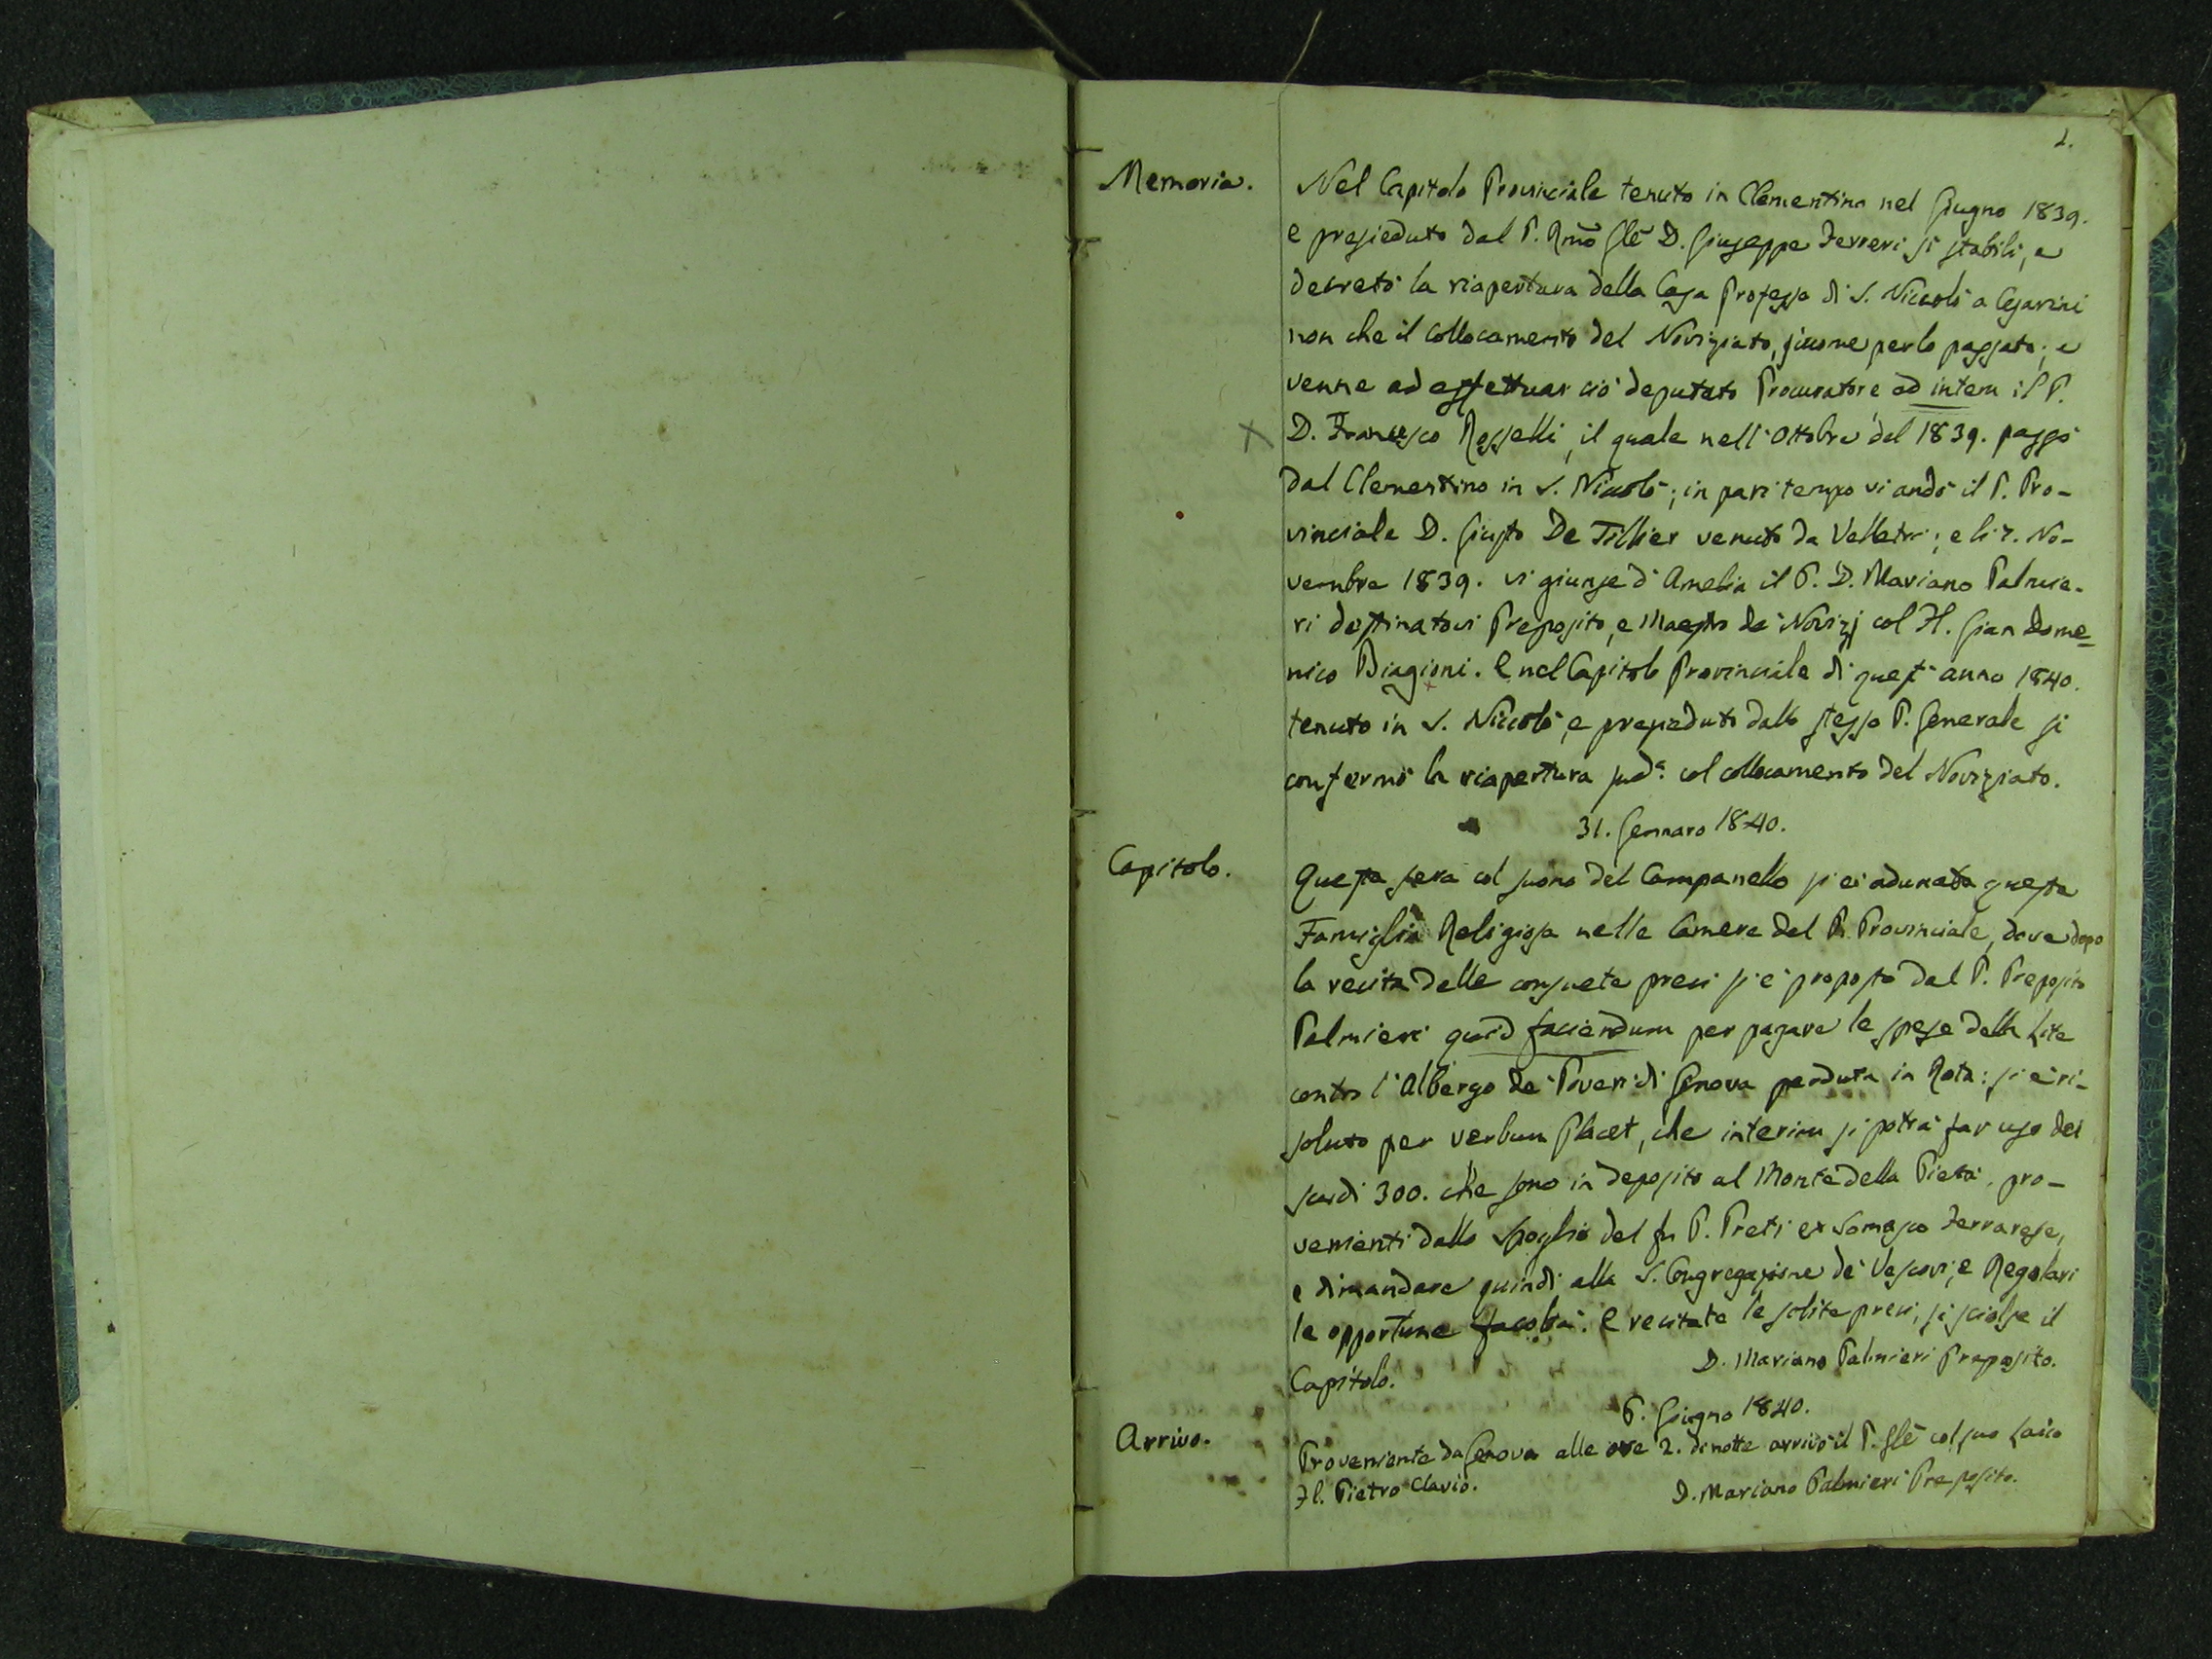 1.
Memoria.
Nel Capitolo Provinciale tenuto in Clementino nel Giugno 1839.
e presieduto dal P. Rmo Gle D. Giuseppe Ferreri si stabilì, e
decretò la riapertura della Casa professa di S. Niccolò a Cesarini
non che il collocamento del Noviziato, siccome per lo passato; e
venne ad effettuar ciò deputato Procuratore ad interim il P.
D. Francesco Rosselli, il quale nell'Ottobre del 1839. passò
dal Clementino in S. Niccolò; in pari tempo vi andò il P. Pro-
vinciale D. Giusto De Tillier venuto da Velletri; e li 7. No-
vembre 1839. vi giunse d'Amelia il P. D. Mariano Palmie-
ri destinatovi Preposito, e Maestro de' Novizj col Fl. Gian Dome-
nico Biagioni. E nel Capitolo Provinciale di quest'anno 1840.
tenuto in S. Niccolò, e presieduto dallo stesso P. Generale si
confermò la riapertura sudª. col collocamento del Noviziato.
31. Gennaro 1840.
Capitolo.
Questa sera col suono del Campanello si è adunata questa
Famiglia Religiosa nelle Camere del P. Provinciale, dove dopo
la recita delle consuete preci si è proposto dal P. Preposito
Palmieri quid faciendum per pagare le spese della Lite
contro l'Albergo de' Poveri di Genova perduta in Rota: si è ri-
soluto per verbum Placet, che interim si potrà far uso dei
scudi 300. che sono in deposito al Monte della Pietà, pro-
venienti dallo Spoglio del fu P. Preti ex Somasco Ferrarese,
e dimandare quindi alla S. Congregazione de' Vescovi, e Regolari
le opportune facoltà. E recitate le solite preci, si sciolse il
Capitolo.
D. Mariano Palmieri Preposito.
6. Giugno 1840.
Arrivo.
Proveniente da Genova alle ore 2. di notte arrivò il P. Gle col suo Laico
Fl. Pietro Clavio.
D. Mariano Palmieri Preposito.